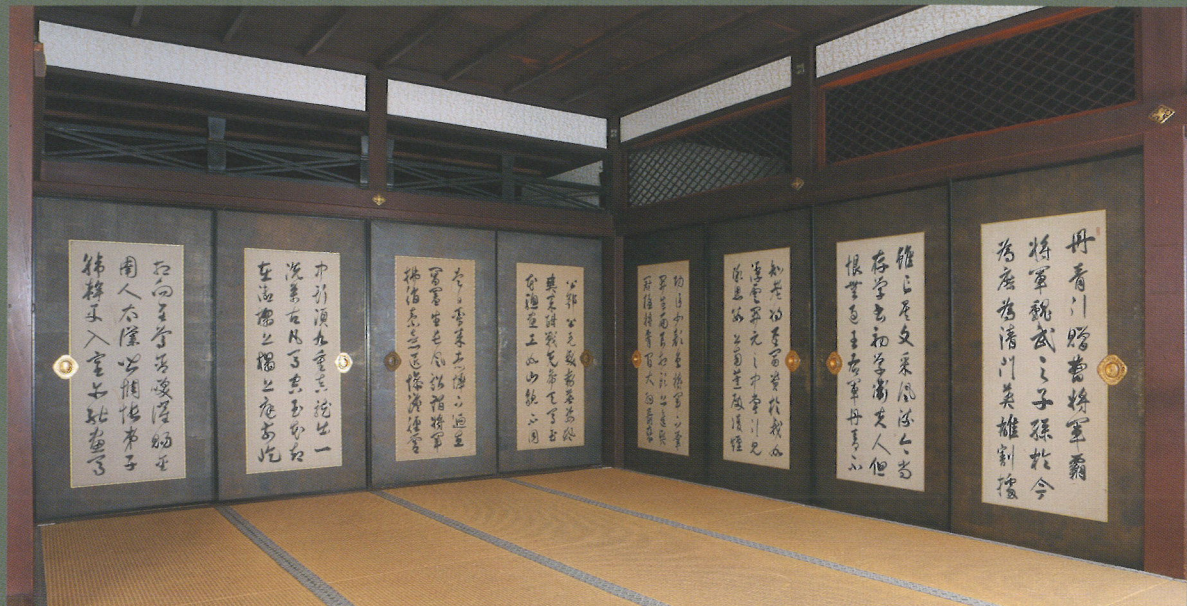 丹青引贈曹將軍霸
將軍魏武之子孫於今
為庶為清門英雄割據
雖已矣文采風流今尚
存學書初學衛夫人但
恨無過王右軍丹青不
知老將至富貴於我如
浮雲開元之中常引見
承恩數上南薰殿凌煙
功臣少顏色將軍下筆
開生面良相頭上進賢
冠猛將腰間大羽箭褒
公鄂公毛髮動英姿颯
爽來酣戰先帝天馬玉
花驄畫工如山貌不同
是日牽來赤墀下迥立
閶闔生長風詔謂將軍
拂絹素意匠慘澹經營
中斯須九重真龍出一
洗萬古凡馬空玉花却
在御榻上榻上庭前屹
相向至尊含笑催賜金
圉人太僕皆惆悵弟子
韓幹早入室亦能畫馬